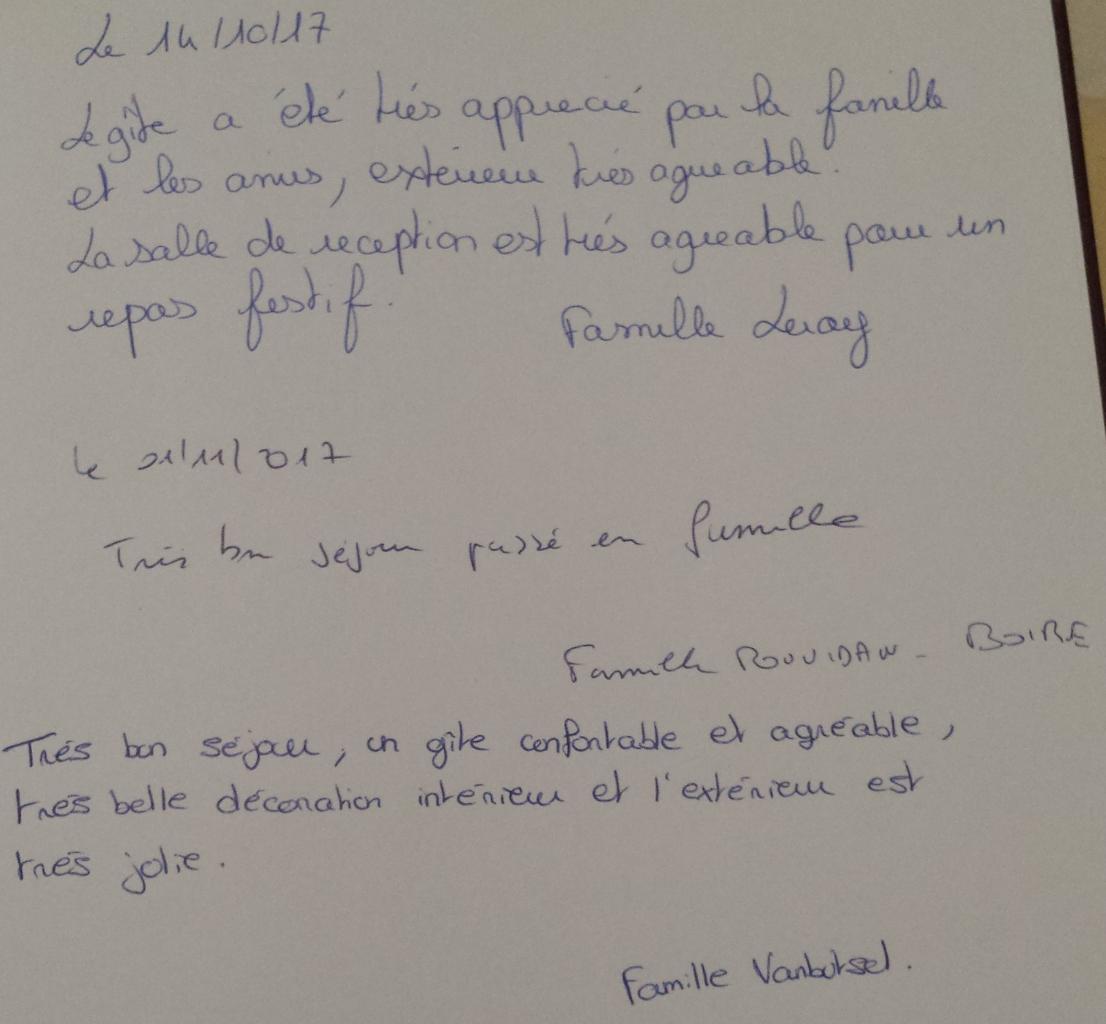 Le 14/10/17
Le gîte a été trés apprecié par la famille
et les amis, exterieur trés agreable.
La salle de reception est trés agreable pour un
repas festif. Famille Leray
le 01/11/2017
Très bon séjour passé en famille
Famille BOIRE
Trés bon séjour, un gîte confortable et agréable,
trés belle décoration intérieur et l'extérieur est
trés jolie.
Famille Vanbutsel.